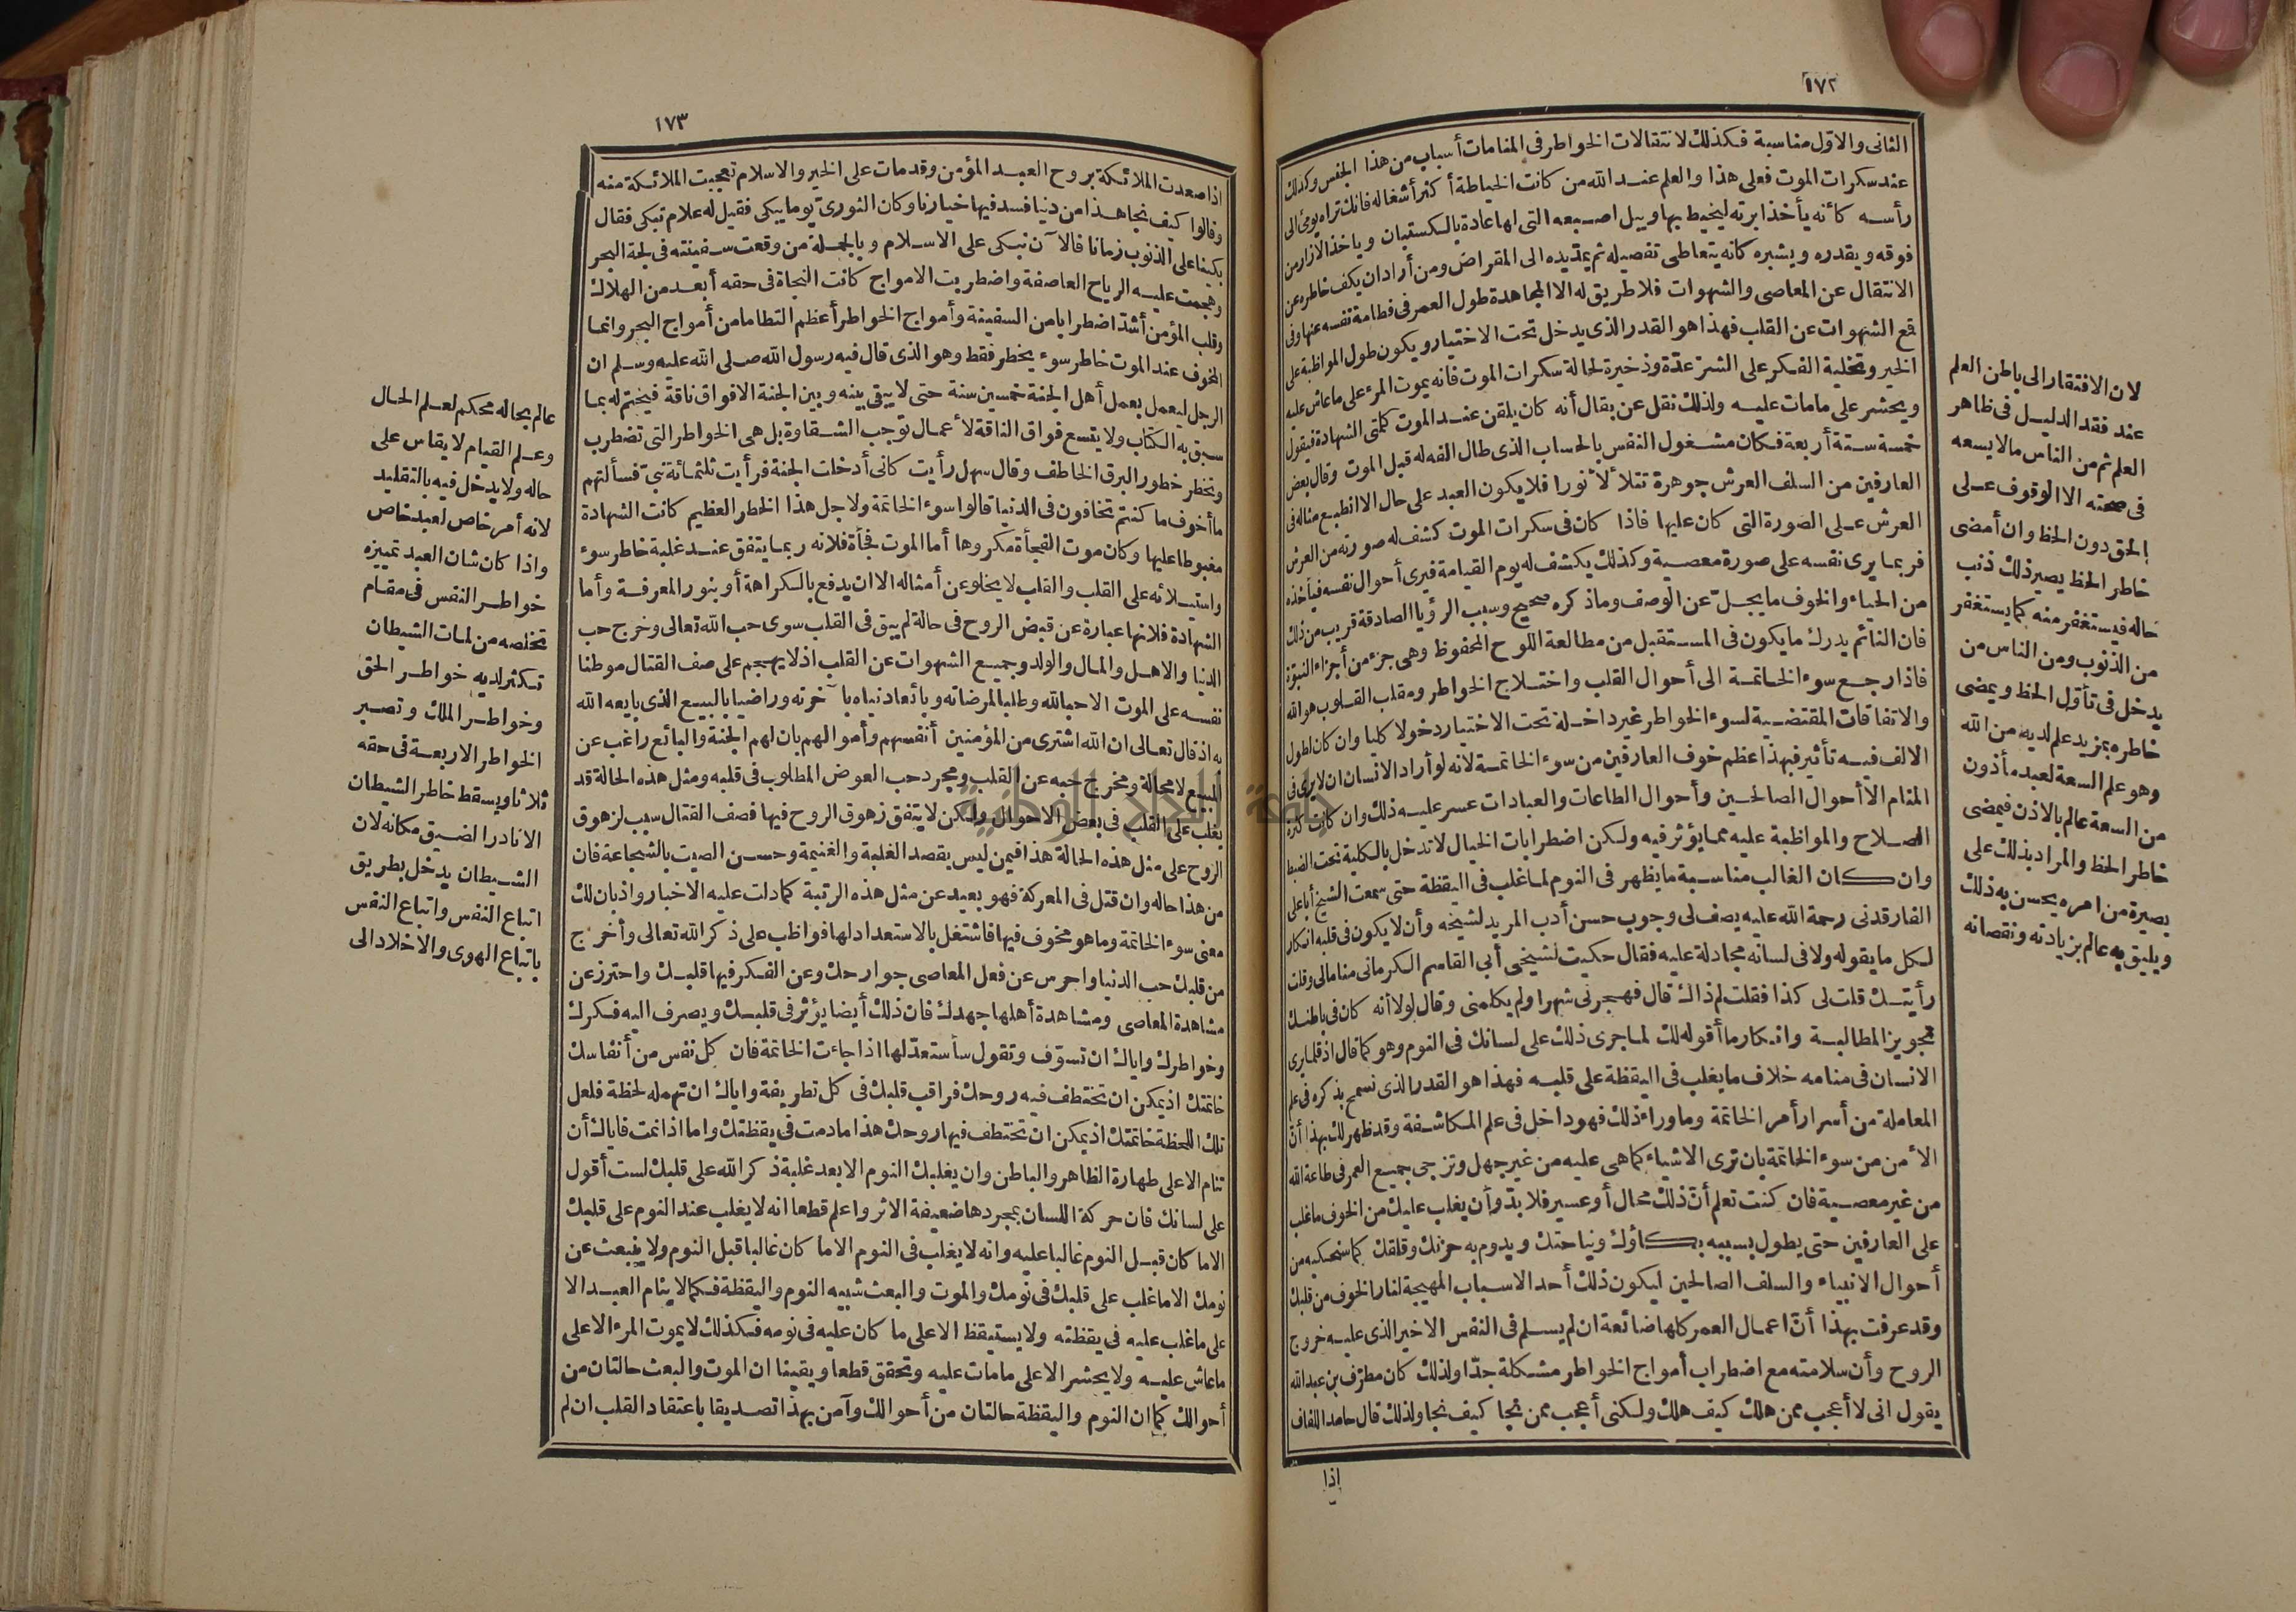 ١٧٢
الثانى والاوّل مناسبة فكذلك لانتقالات الخواطر فى المنامات أسباب من هذا الجنس وكذلك
عند سكرات الموت فعلى هذا والعلم عند الله من كانت الخياطة أكثر أشغاله فانك تراه يومئ الى
رأسه كأنه يأخذ ابرته ليخيط بها ويبل اصبعه التى لها عادة بالكستبان ويأخذ الازار من
فوقه ويقدره ويشبره كانه يتعاطى تفصيله ثم يمدّيده الى المقراض ومن أراد ان يكف خاطره عن
الانتقال عن المعاصى والشهوات فلا طريق له الا المجاهدة طول العمر فى فطامة نفسه عنها وفى
قمع الشهوات عن القلب فهذا هو القدر الذى يدخل تحت الاختيار ويكون طول المواظبة على
الخير وتخلية الفكر على الشرّ عدّة وذخيرة لحالة سكرات الموت فانه يموت المرء على ماعاش عليه
ويحشر على مامات عليه ولذلك نقل عن بقال أنه كان يلقن عند الموت كلمتى الشهادة فيقول
خمسة ستة أربعة فكان مشغول النفس بالحساب الذى طال الفه له قبل الموت وقال بعض
العارفين من السلف العرش جوهرة تتلألأ نورا فلا يكون العبد على حال الا انطبع مثاله فى
العرش على الصورة التى كان عليها فاذا كان فى سكرات الموت كشف له صورته من العرش
فربما يرى نفسه على صورة معصية وكذلك يكشف له يوم القيامة فيرى أحوال نفسه فيأخذه
من الحياء والخوف ما يجلّ عن الوصف وماذكره صحيح وسبب الرؤيا الصادقة قريب من ذلك
فان النائم يدرك ما يكون فى المستقبل من مطالعة اللوح المحفوظ وهى جزء من أجزاء النبوّة
فاذا رجع سوء الخاتمة الى أحوال القلب واختلاج الخواطر ومقلب القلوب هو الله
والاتفاقات المقتضية لسوء الخواطر غير داخلة تحت الاختيار دخولا كليا وان كان لطول
الالف فيه تأثير فهذا عظم خوف العارفين من سوء الخاتمة لانه لو أراد الانسان ان لا يرى فى
المنام الا أحوال الصالحين وأحوال الطاعات والعبادات عسر عليه ذلك وان كانت كثرة
الصلاح والمواظبة عليه مما يؤثر فيه ولكن اضطرابات الخيال لاتدخل بالكلية تحت الضبط
وان كان الغالب مناسبة ما يظهر فى النوم لما غلب فى اليقظة حتى سمعت الشيخ أباعلى
الفارقدنى رحمة الله عليه يصف لى وجوب حسن أدب المريد لشيخه وأن لا يكون فى قلبه انكار
لكل ما يقوله ولا فى لسانه مجادلة عليه فقال حكيت لشيخى أبى القاسم الكرمانى مناما لى وقلت
رأيتك قلت لى كذا فقلت لم ذاك قال فهجرنى شهرا ولم يكلمنى وقال لولا أنه كان فى باطنك
تجويز المطالبة وانكار ما أقوله لك لما جرى ذلك على لسانك فى النوم وهو كما قال اذ قلما يرى
الانسان فى منامه خلاف ما يغلب فى اليقظة على قلبه فهذا هو القدر الذى نسمح بذكره فى علم
المعاملة من أسرار أمر الخاتمة وما وراء ذلك فهو داخل فى علم المكاشفة وقد ظهر لك بهذا أنّ
الأمن من سوء الخاتمة بان ترى الاشياء كما هى عليه من غير جهل وتزجى جميع العمر فى طاعة الله
من غير معصية فان كنت تعلم أنّ ذلك محال أو عسير فلا بدّ وأن يغلب عليك من الخوف ما غلب
على العارفين حتى يطول بسببه بكاؤك ونياحتك ويدوم به حزنك وقلقك كما سنحكيه من
أحوال الانبياء والسلف الصالحين ليكون ذلك أحد الاسباب المهيجة لنار الخوف من قلبك
وقد عرفت بهذا أنّ اعمال العمر كلها ضائعة ان لم يسلم فى النفس الاخير الذى عليه خروج
الروح وأن سلامته مع اضطراب أمواج الخواطر مشكلة جدّا ولذلك كان مطرّف بن عبد الله
يقول انى لا أعجب ممن هلك كيف هلك ولكنى أعجب ممن نجا كيف نجا ولذلك قال حامد اللفاف
اذا
لان الافتقار الى باطن العلم
عند فقد الدليل فى ظاهر
العلم ثم من الناس ما لا يسعه
فى صحته الا الوقوف على
الحق دون الحظ وان أمضى
خاطر الحظ يصير ذلك ذنب
حاله فيستغفر منه كما يستغفر
من الذنوب ومن الناس من
يدخل فى تأوّل الحظ ويمضى
خاطره بمزيد علم لديه من الله
وهو علم السعة لعبد مأذون
من السعة عالم بالاذن فيمضى
خاطر الحظ والمراد بذلك على
بصيرة من امره يحسن به ذلك
ويليق به عالم بزيادته ونقصانه
١٧٣
اذا صعدت الملائكة بروح العبد المؤمن وقد مات على الخير والاسلام تعجبت الملائكة منه
وقالوا كيف نجا هذا من دنيا فسد فيها خيارنا وكان الثورى يوما يبكى فقيل له علام تبكى فقال
بكينا على الذنوب زمانا فالآن نبكى على الاسلام وبالجملة من وقعت سفينته فى لجة البحر
وهجمت عليه الرياح العاصفة واضطربت الامواج كانت النجاة فى حقه أبعد من الهلاك
وقلب المؤمن أشدّ اضطرابا من السفينة وأمواج الخواطر أعظم التطاما من أمواج البحر وانما
المخوف عند الموت خاطر سوء يخطر فقط وهو الذى قال فيه رسول الله صلى الله عليه وسلم ان
الرجل ليعمل بعمل أهل الجنة خمسين سنة حتى لا يبقى بينه وبين الجنة الا فواق ناقة فيختم له بما
سبق به الكتاب ولا يتسع فواق الناقة لأعمال توجب الشقاوة بل هى الخواطر التى تضطرب
وتخطر خطور البرق الخاطف وقال سهل رأيت كانى أدخلت الجنة فرأيت ثلثمائة نبىّ فسألتهم
ما أخوف ما كنتم تخافون فى الدنيا قالوا سوء الخاتمة ولاجل هذا الخطر العظيم كانت الشهادة
مغبوطا عليها وكان موت الفجأة مكروها أما الموت فجأة فلانه ربما يتفق عند غلبة خاطر سوء
واستيلائه على القلب والقلب لا يخلو عن أمثاله الا ان يدفع بالكراهة أو بنور المعرفة وأما
الشهادة فلانها عبارة عن قبض الروح فى حالة لم يبق فى القلب سوى حب الله تعالى وخرج حب
الدنيا والاهل والمال والولد وجميع الشهوات عن القلب اذ لا يهجم على صف القتال موطنا
نفسه على الموت الا حبا لله وطلبا لمرضاته وبائعا دنياه بآخرته وراضيا بالبيع الذى بايعه الله
به اذ قال تعالى ان الله اشترى من المؤمنين أنفسهم وأموالهم بان لهم الجنة والبائع راغب عن
المبيع لا محالة ومخرج حبه عن القلب ومجرد حب العوض المطلوب فى قلبه ومثل هذه الحالة قد
يغلب على القلب فى بعض الاحوال ولكن لا يتفق زهوق الروح فيها فصف القتال سبب لزهوق
الروح على مثل هذه الحالة هذا فيمن ليس يقصد الغلبة والغنيمة وحسن الصيت بالشجاعة فان
من هذا حاله وان قتل فى المعركة فهو بعيد عن مثل هذه الرتبة كما دلت عليه الاخبار واذ بان لك
معنى سوء الخاتمة وما هو مخوف فيها فاشتغل بالاستعداد لها فواظب على ذكر الله تعالى وأخرج
من قلبك حب الدنيا واحرس عن فعل المعاصى جوارحك وعن الفكر فيها قلبك واحترز عن
مشاهدة المعاصى ومشاهدة أهلها جهدك فان ذلك أيضا يؤثر فى قلبك ويصرف اليه فكرك
وخواطرك واياك ان تسوّف وتقول سأستعدّ لها اذا جاءت الخاتمة فان كل نفس من أنفاسك
خاتمتك اذ يمكن ان تختطف فيه روحك فراقب قلبك فى كل تطريفة واياك ان تهمله لحظة فلعل
تلك اللحظة خاتمتك اذ يمكن ان تختطف فيها روحك هذا مادمت فى يقظتك واما اذا نمت فاياك أن
تنام الا على طهارة الظاهر والباطن وان يغلبك النوم الا بعد غلبة ذكر الله على قلبك لست أقول
على لسانك فان حركة اللسان بمجردها ضعيفة الاثر واعلم قطعا انه لا يغلب عند النوم على قلبك
الا ما كان قبل النوم غالبا عليه وانه لا يغلب فى النوم الا ما كان غالبا قبل النوم ولا ينبعث عن
نومك الا ما غلب على قلبك فى نومك والموت والبعث شبيه النوم واليقظة فكما لا ينام العبد الا
على ما غلب عليه فى يقظته ولا يستيقظ الا على ما كان عليه فى نومه فكذلك لا يموت المرء الا على
ما عاش عليه ولا يحشر الا على مامات عليه وتحقق قطعا ويقينا ان الموت والبعث حالتان من
أحوالك كما ان النوم واليقظة حالتان من أحوالك وآمن بهذا تصديقا باعتقاد القلب ان لم
عالم بحاله محكم لعلم الحال
وعلم القيام لا يقاس على
حاله ولا يدخل فيه بالتقليد
لانه أمر خاص لعبد خاص
واذا كان شان العبد تمييز
خواطر النفس فى مقام
تخلصه من لمات الشيطان
تكثر لديه خواطر الحق
وخواطر الملك وتصير
الخواطر الاربعة فى حقه
ثلاثا ويسقط خاطر الشيطان
الا نادرا لضيق مكانه لان
الشيطان يدخل بطريق
اتباع النفس واتباع النفس
باتباع الهوى والاخلاد الى
جامعة النجاح الوطنية